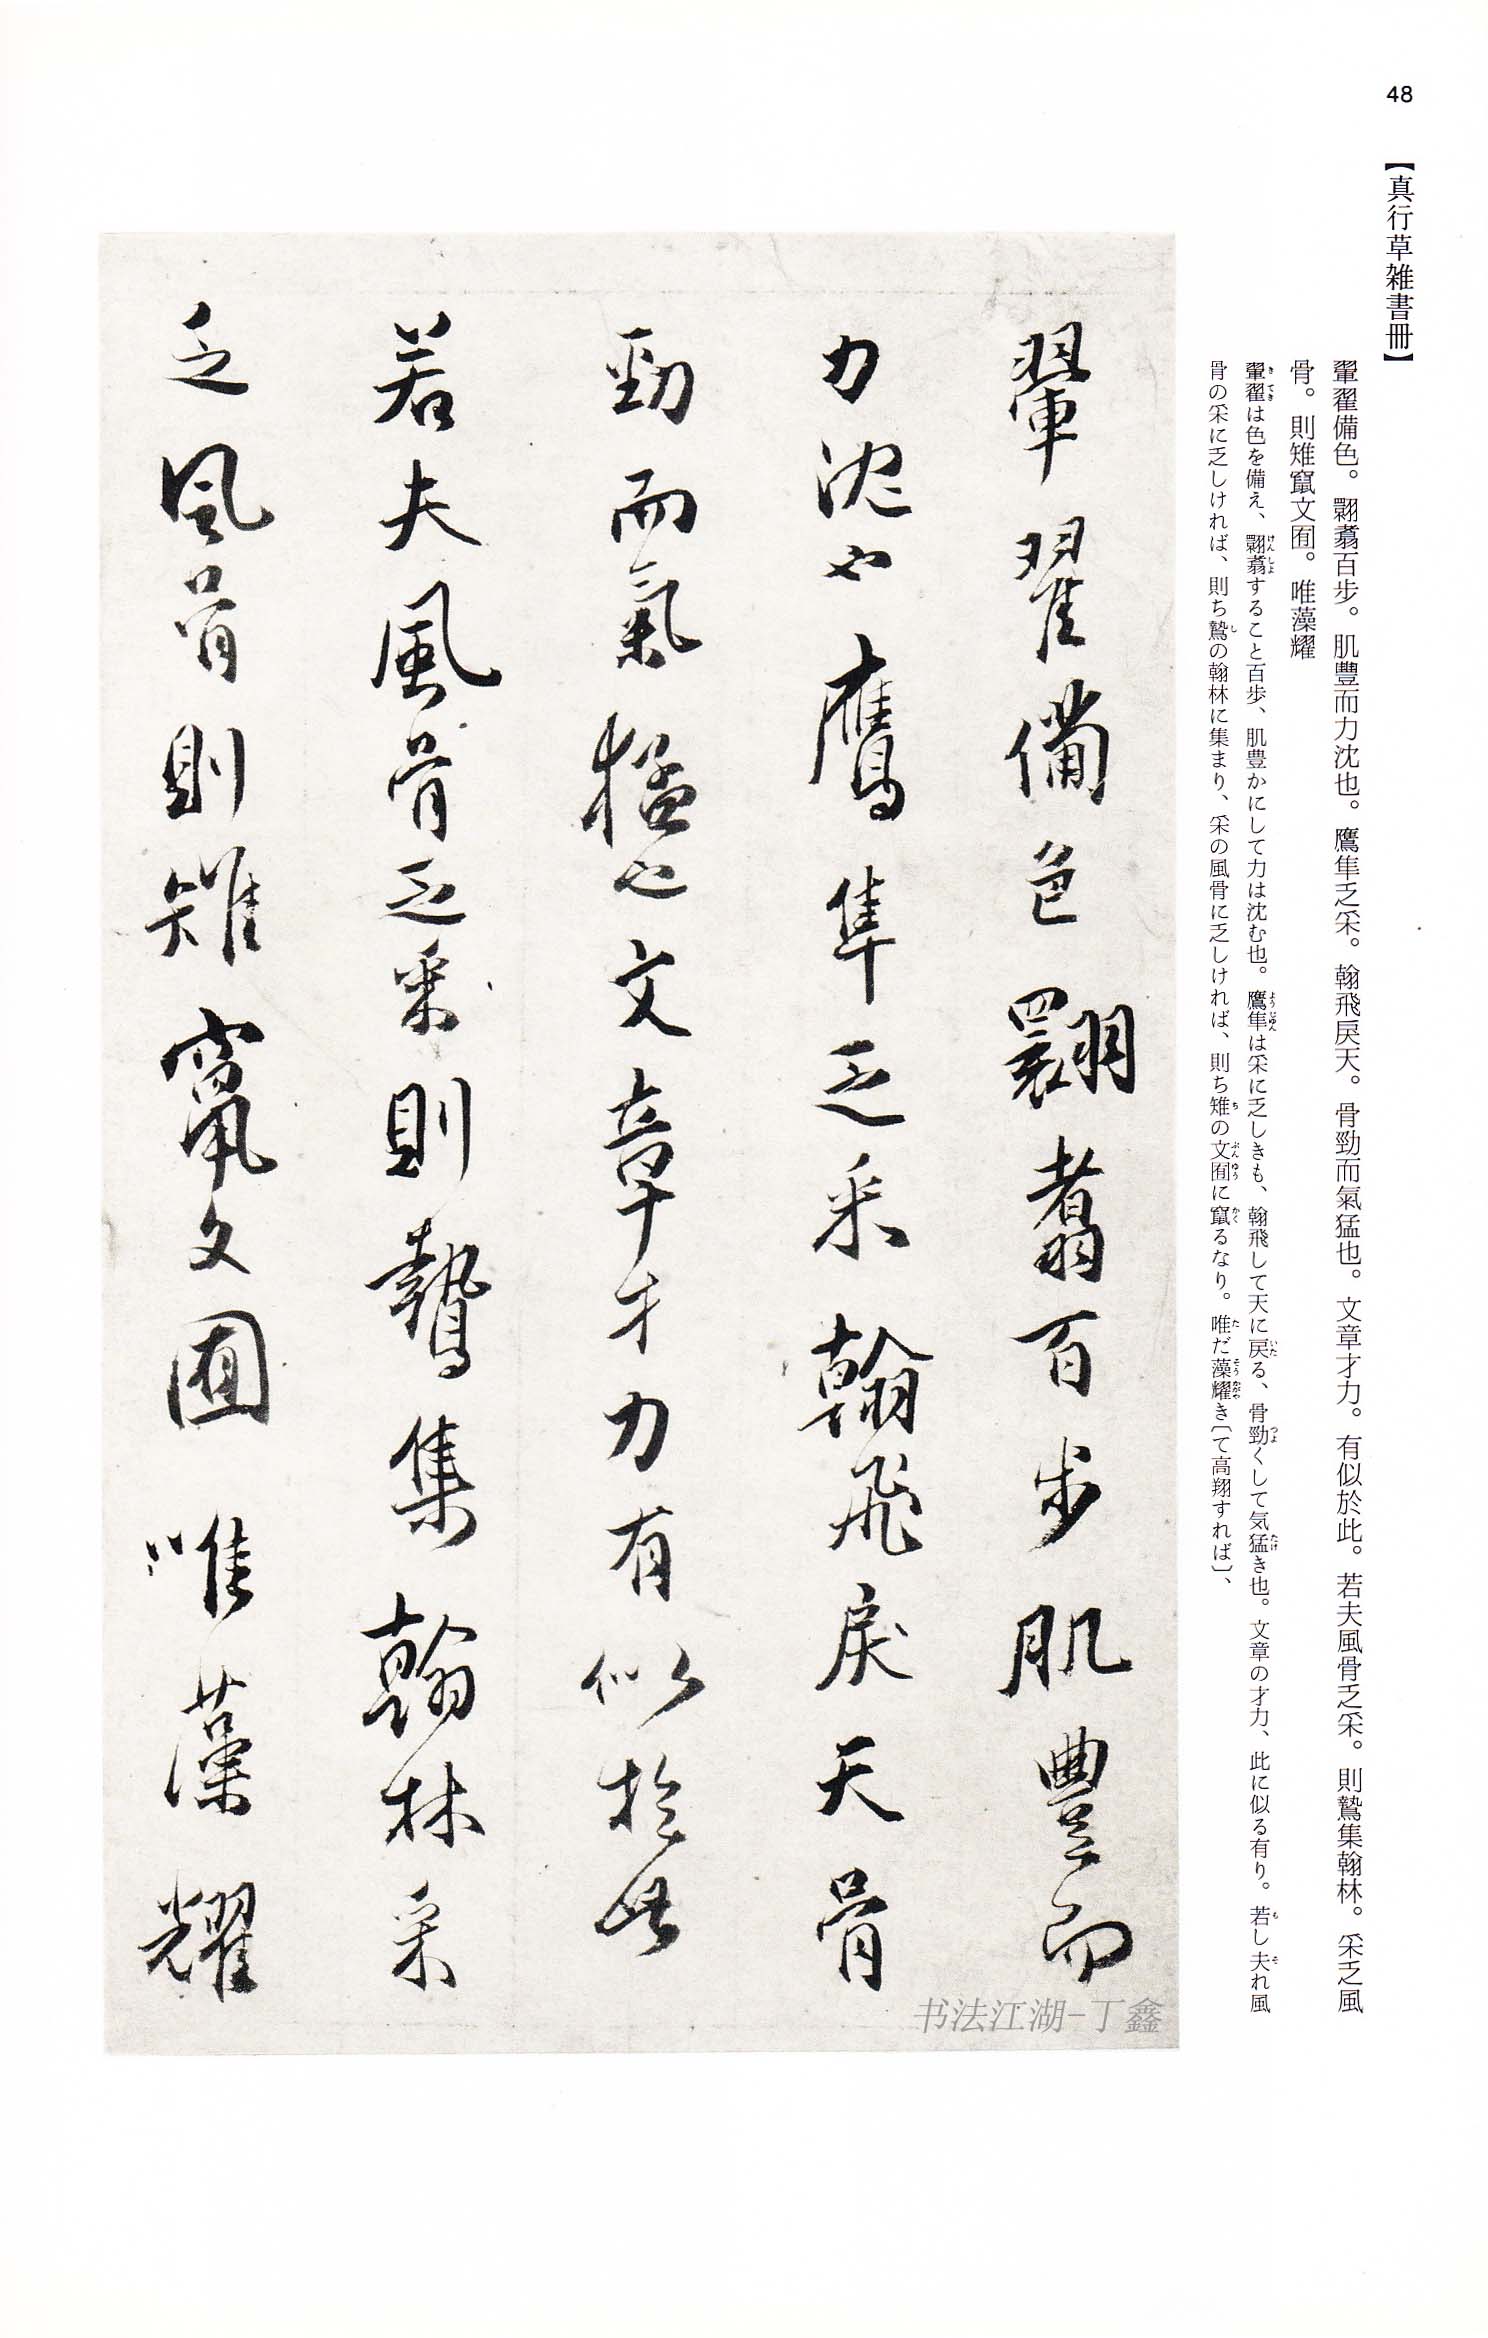 48
【真行草雑書冊】
翬翟備色。翾翥百步。肌豐而力沈也。鷹隼乏采。翰飛戾天。骨勁而氣猛也。文章才力。有似於此。若夫風骨乏采。則鷙集翰林。采乏風
骨。則雉竄文囿。唯藻耀
翬翟は色を備え、翾翥すること百歩、肌豊かにして力は沈む也。鷹隼は采に乏しきも、翰飛して天に戻る、骨勁くして気猛き也。文章の才力、此に似る有り。若し夫れ風
骨の采に乏しければ、則ち鷙の翰林に集まり、采の風骨に乏しければ、則ち雉の文囿に竄るなり。唯だ藻耀き〔て高翔すれば〕、
翬翟備色翾翥百步肌豐而
力沈也鷹隼乏采翰飛戾天骨
勁而氣猛也文章才力有似於此
若夫風骨乏采則鷙集翰林采
乏風骨則雉竄文囿唯藻耀
书法江湖-丁鑫